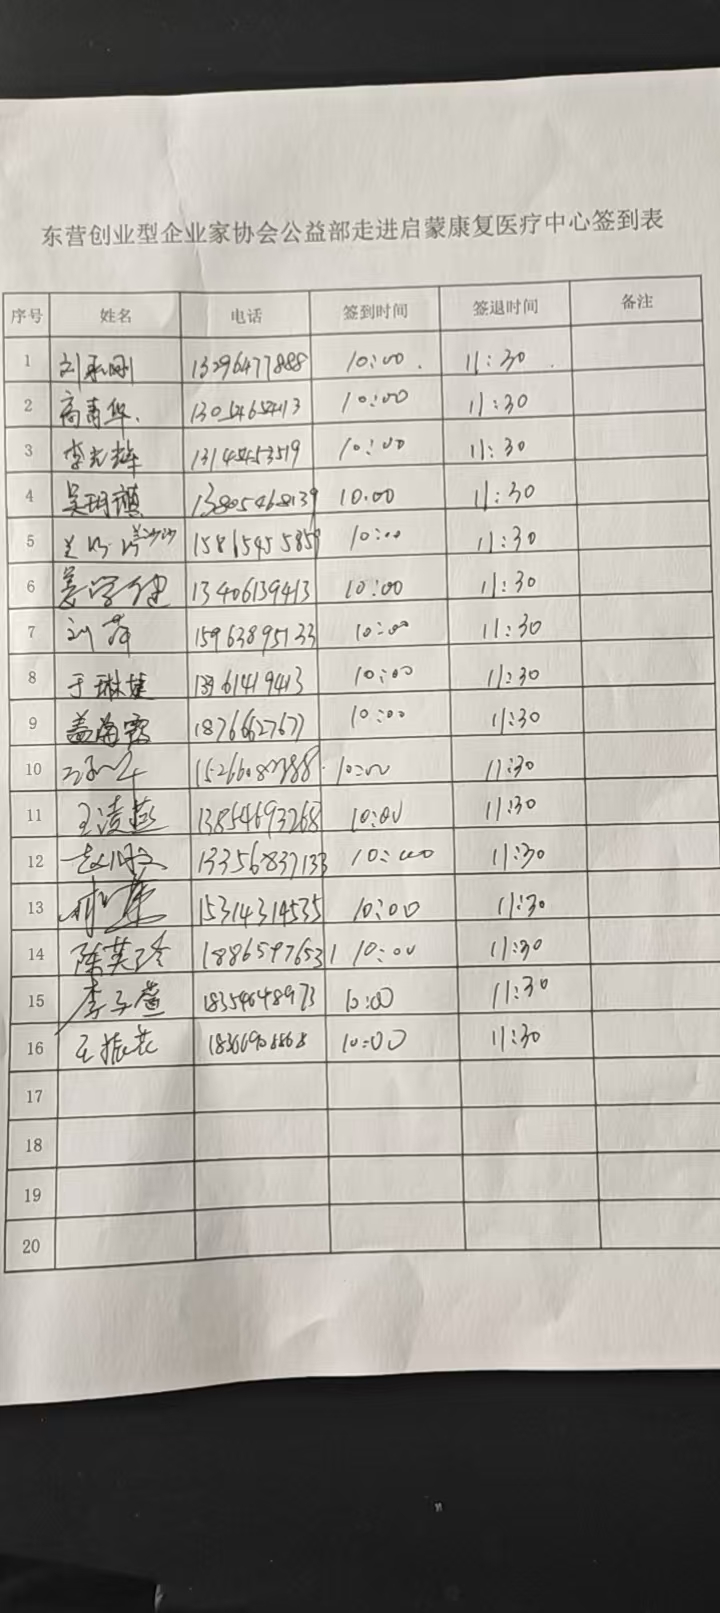 东营创业型企业家协会公益部走进启蒙康复医疗中心签到表
序号 姓名 电话 签到时间 签退时间 备注
1 刘 13296477888 10:00 11:30
2 高青华 13054654413 10:00 11:30
3 李光辉 10:00 11:30
4 吴玥祺 13805468139 10:00 11:30
5 盖沙沙 15865455859 10:00 11:30
6 姜学健 13406139413 10:00 11:30
7 刘萍 15963895133 10:00 11:30
8 于琳婕 13961419413 10:00 11:30
9 盖海霞 18766627677 10:00 11:30
10 10:00 11:30
11 王凌燕 13854693268 10:00 11:30
12 赵 13356837133 10:00 11:30
13 林 15314314535 10:00 11:30
14 陈英玲 18865976531 10:00 11:30
15 李子萱 18354648973 10:00 11:30
16 王振花 10:00 11:30
17
18
19
20